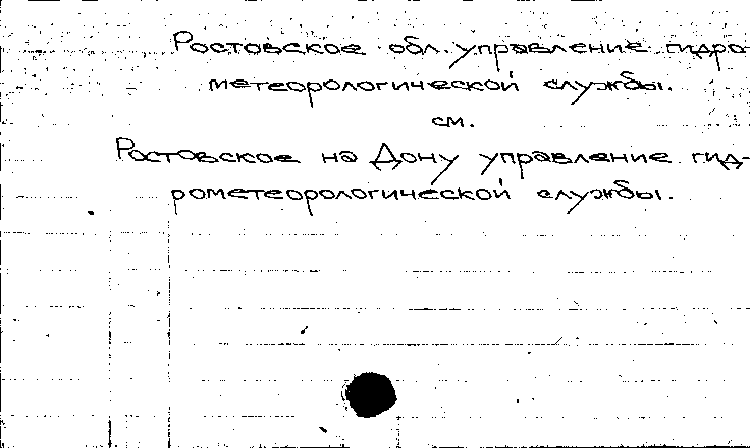 Ростовское обл. управление гидро
метеорологической службы.
см.
Ростовское на Дону управление гид-
рометеорологической службы.